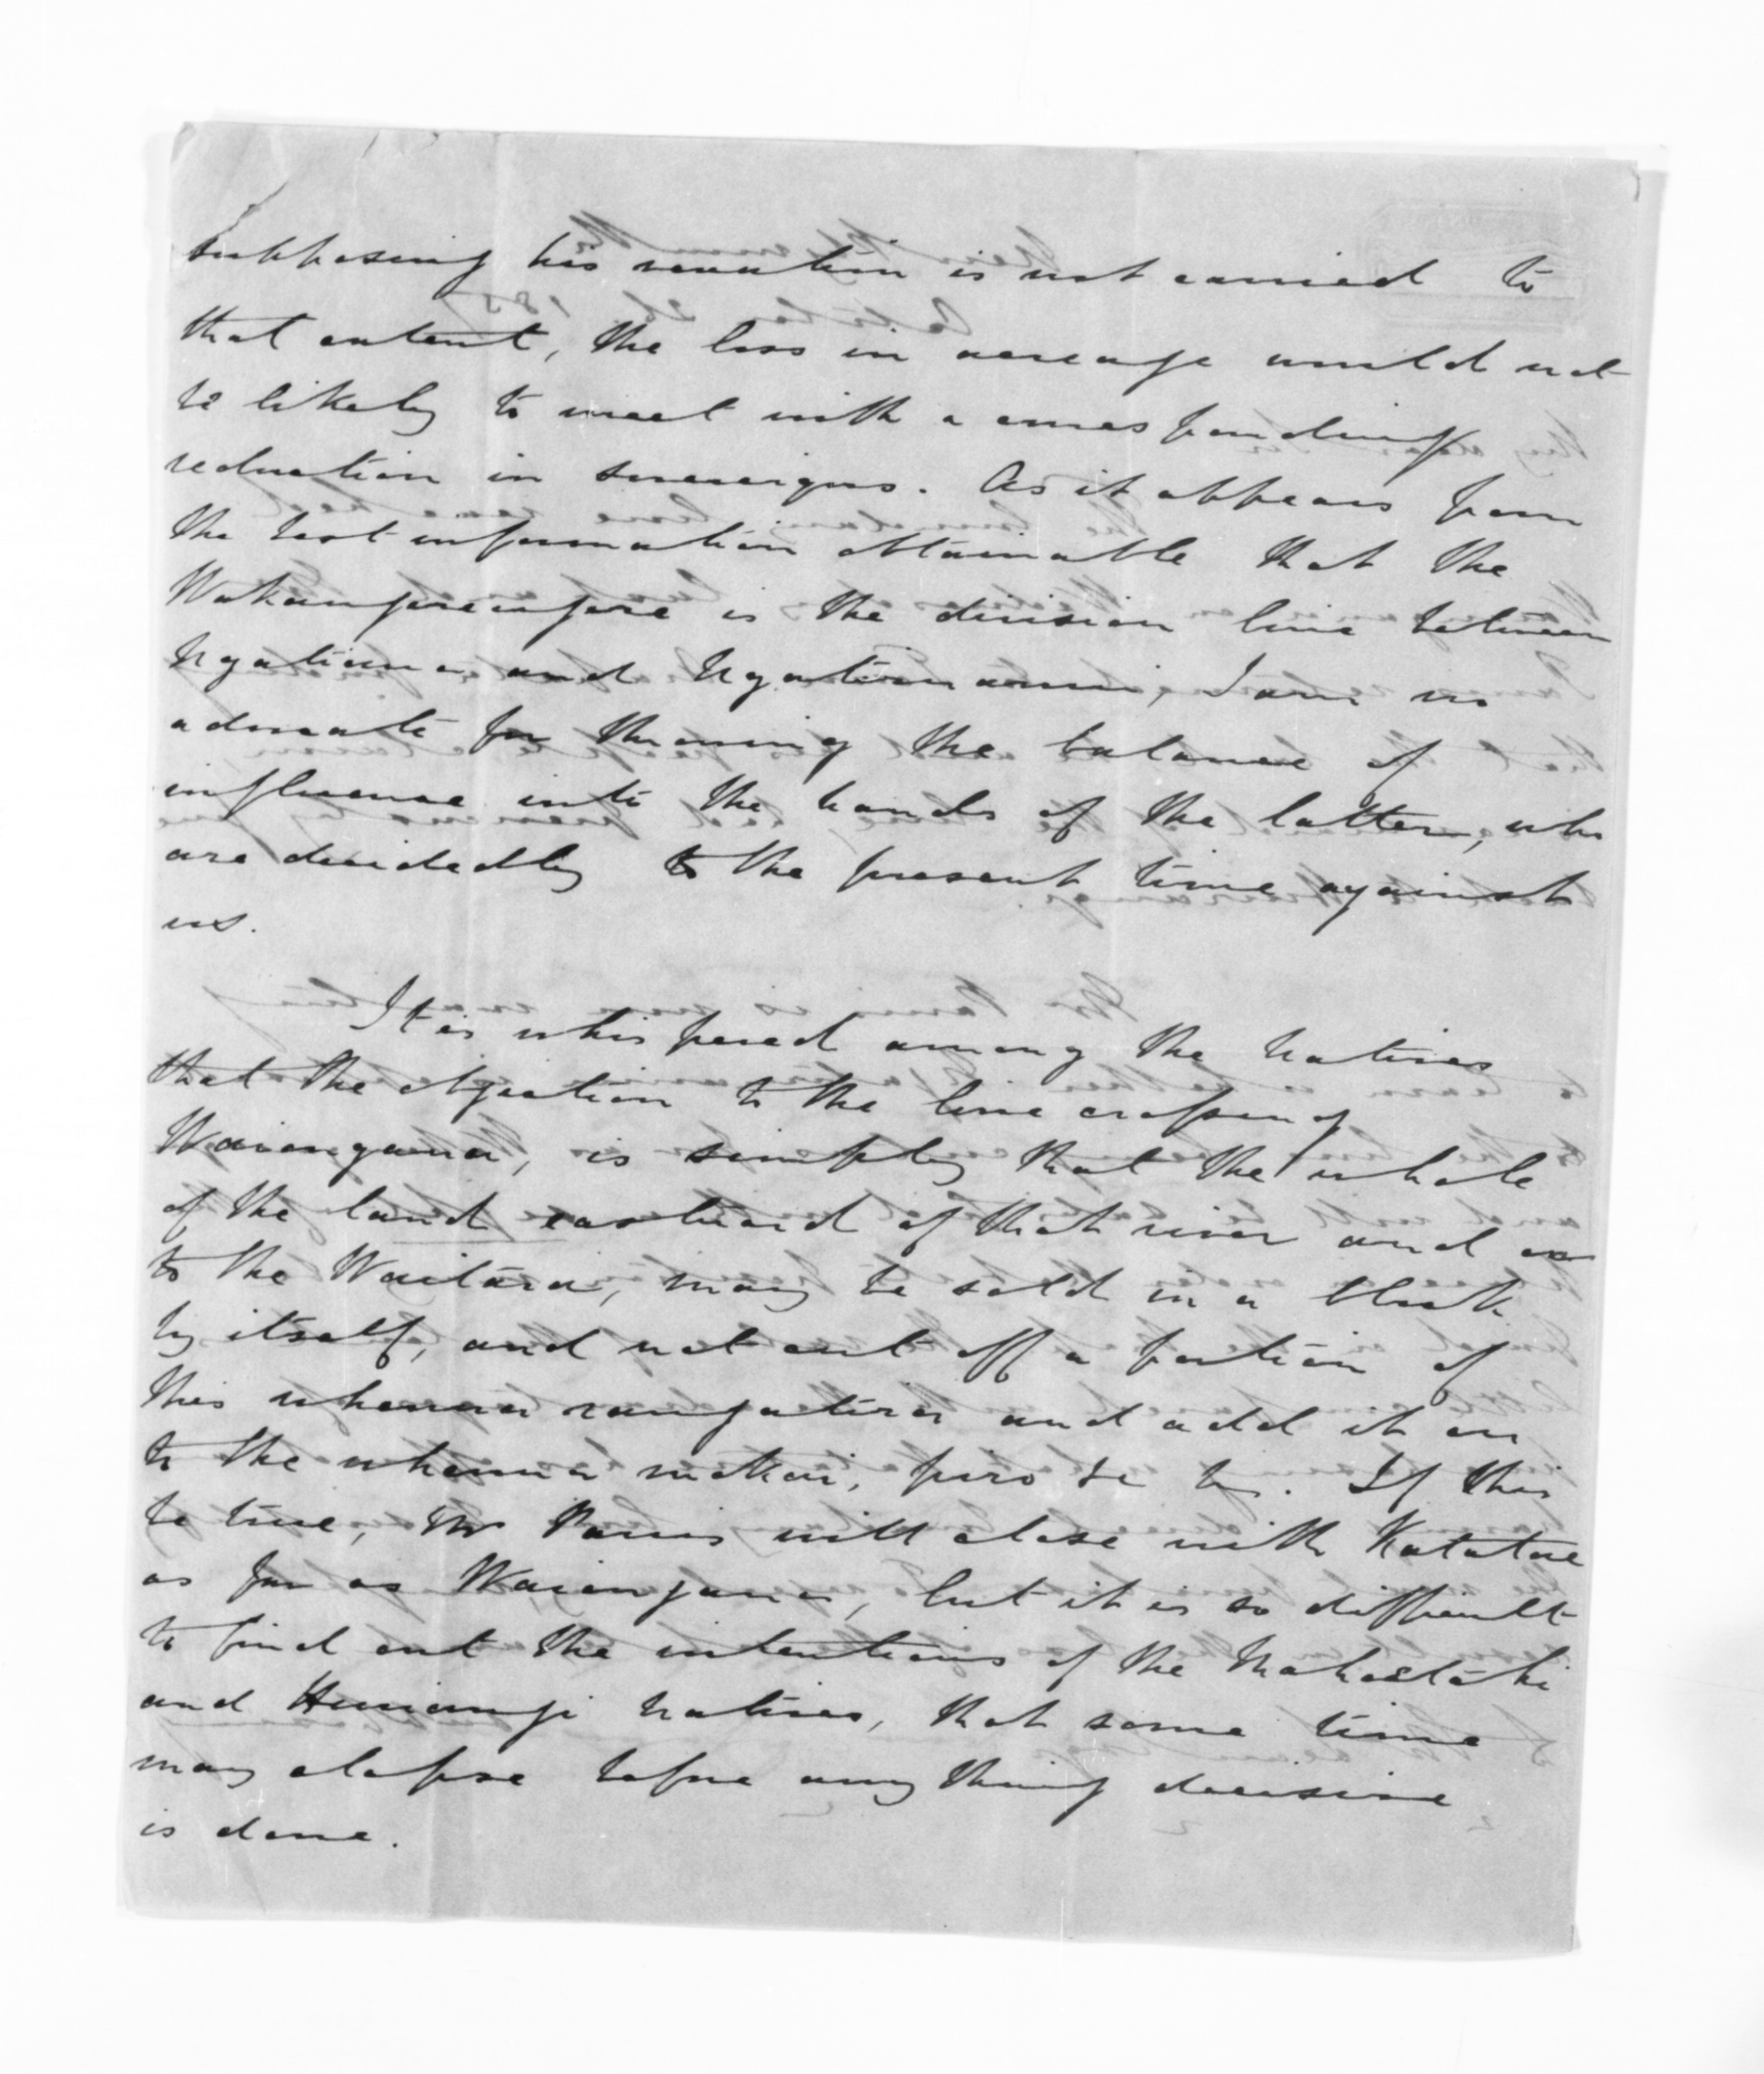 supposing his vacation is not carried to
that extent, the loss in acreage would not
be likely to meet with a corresponding
reduction in sovereigns. As it appears from
the best information obtainable that the
Wakangerengere is the division line between
Ngatiawa and Ngatimaru, I am no
advocate for throwing the balance of
influence into the hands of the latter, who
are decidedly to the present time against
us.
It is whispered among the natives
that the objection to the line crossing
Waiongana, is simply that the whole
of the land eastward of that river and on
to the Waitara, may be sold in a block
by itself, and not cut off a portion of
this whenua rangatira and add it on
to the whenua mokai, piro &c &c. If this
be true, Mr Parris will close with Katatore
as far as Waiongana, but it is so difficult
to find out the intentions of the Mahoetahi
and Huirangi natives, that some time
may elapse before any thing decisive
is done.